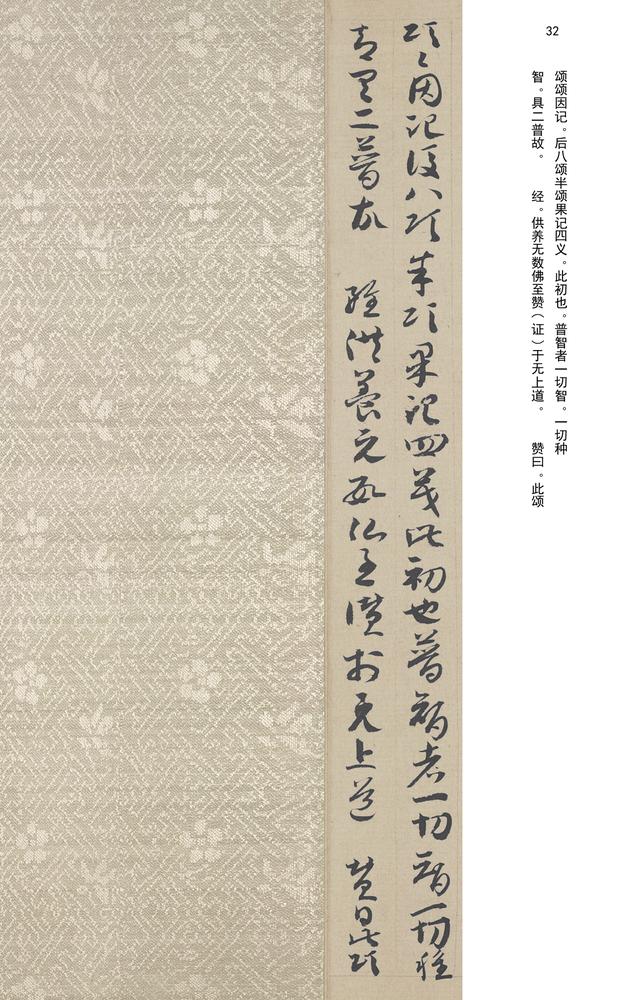 32
颂颂因记。后八颂半颂果记四义。此初也。普智者一切智。一切种
智。具二普故。　经。供养无数佛至赞（证）于无上道。　赞曰。此颂
頌〻因記後八頌半頌果記四義此初也普智者一切智一切種
智具二普故　經供養无數仏至讚於无上道　賛曰此頌